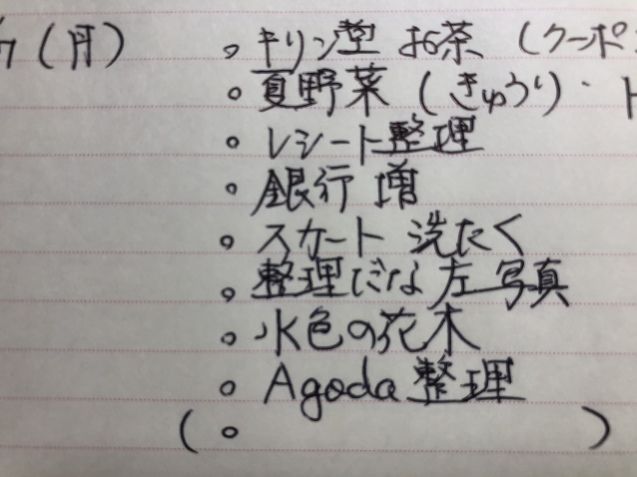 7 (月) 。キリン堂 お茶 (クーポ
。夏野菜 (きゅうり)・ト
。レシート整理
。銀行 増
。スカート 洗たく
。整理だな 左 写真
。水色の花木
。Agoda 整理
(。 )